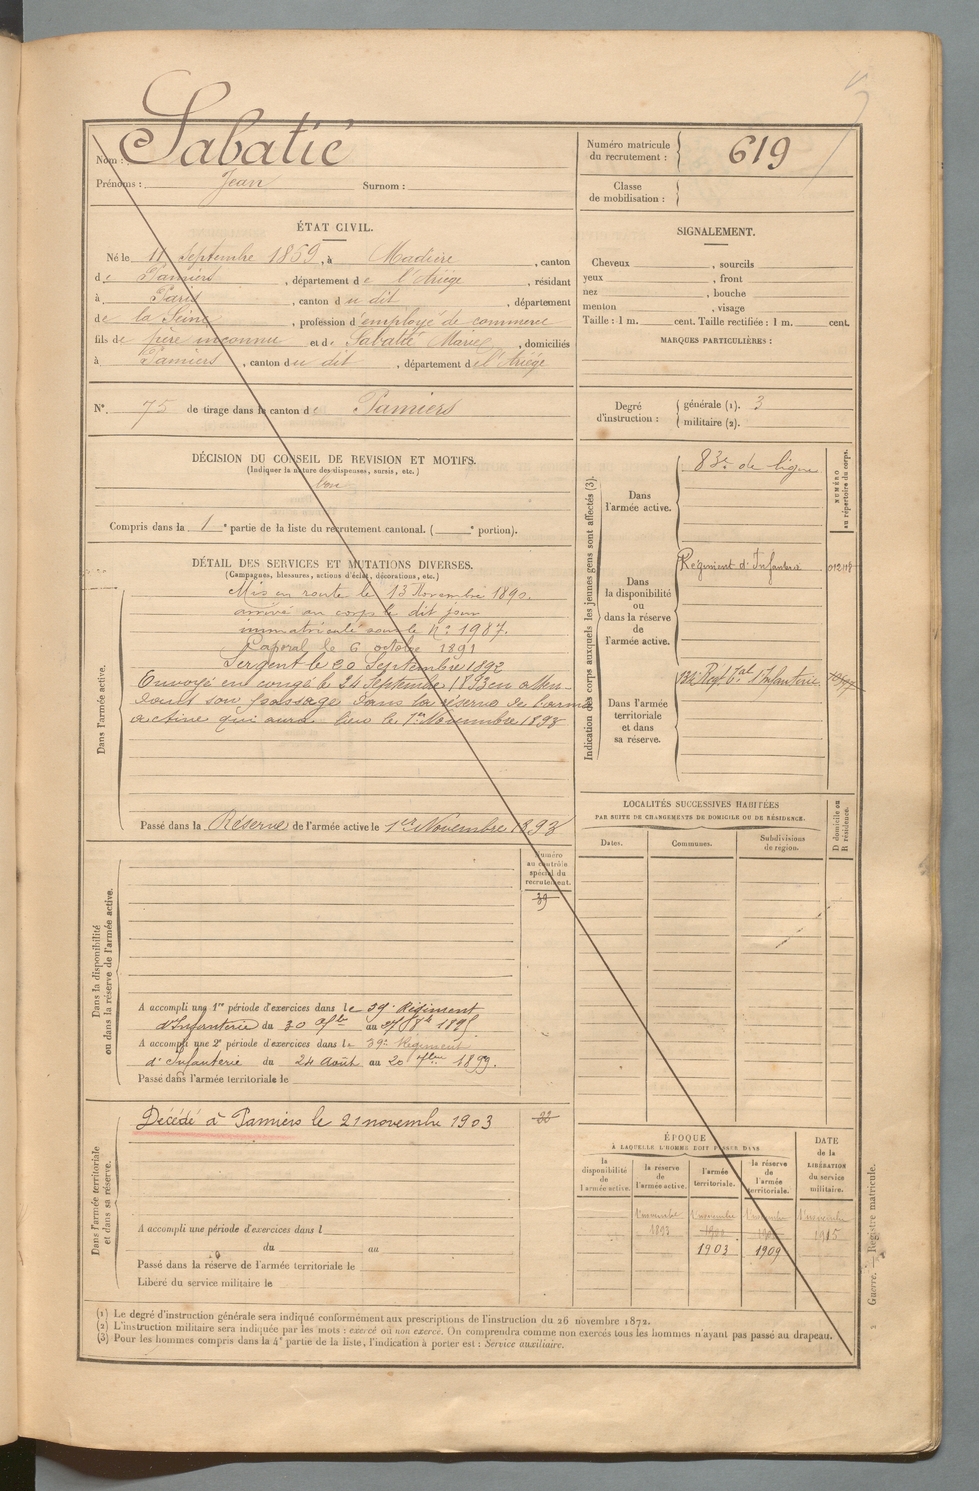 Nom : Sabatié
Prénoms : Jean Surnom :
Numéro matricule
du recrutement : 619
Classe
de mobilisation :
ÉTAT CIVIL.
Né le 11 Septembre 1869, à Madière, canton
de Pamiers, département de l'Ariège, résidant
à Paris, canton du dit, département
de la Seine, profession d'employé de commerce
fils de père inconnu et de Sabatié Marie, domiciliés
à Pamiers, canton du dit, département de l'Ariège
N° 75 de tirage dans le canton de Pamiers
SIGNALEMENT.
Cheveux , sourcils
yeux , front
nez , bouche
menton , visage
Taille : 1 m. cent. Taille rectifiée : 1 m. cent.
MARQUES PARTICULIÈRES :
Degré
d'instruction :
générale (1). 3
militaire (2).
DÉCISION DU CONSEIL DE REVISION ET MOTIFS.
(Indiquer la nature des dispenses, sursis, etc.)
bon
Compris dans la 1e partie de la liste du recrutement cantonal. ( e portion).
DÉTAIL DES SERVICES ET MUTATIONS DIVERSES.
(Campagnes, blessures, actions d'éclat, décorations, etc.)
Dans l'armée active.
Mis en route le 13 Novembre 1890.
arrivé au corps le dit jour
immatriculé sous le N° 1987.
Caporal le 6 octobre 1891
Sergent le 20 Septembre 1892
Envoyé en congé le 24 Septembre 1893 en atten-
dant son passage dans la réserve de l'armée
active qui aura lieu le 1er Novembre 1893
Passé dans la Réserve de l'armée active le 1er Novembre 1893
Indication des corps auxquels les jeunes gens sont affectés (3).
NUMÉRO
au répertoire du corps.
Dans
l'armée active.
83e de ligne
Dans
la disponibilité
ou
dans la réserve
de
l'armée active.
Régiment d'Infanterie
Dans l'armée
territoriale
et dans
sa réserve.
Régt Tal d'Infanterie
LOCALITÉS SUCCESSIVES HABITÉES
PAR SUITE DE CHANGEMENTS DE DOMICILE OU DE RÉSIDENCE.
D domicile ou
R résidence.
Dates.
Communes.
Subdivisions
de région.
Dans la disponibilité
ou dans la réserve de l'armée active.
Numéro
au contrôle
spécial du
recrutement.
39
A accompli une 1re période d'exercices dans le 39e Régiment
d'Infanterie du 30 7bre au 27 8bre 1895.
A accompli une 2e période d'exercices dans le 39e Régiment
d'Infanterie du 24 Août au 20 7bre 1899.
Passé dans l'armée territoriale le
Dans l'armée territoriale
et dans sa réserve.
Décédé à Pamiers le 21 novembre 1903
A accompli une période d'exercices dans l
du au
Passé dans la réserve de l'armée territoriale le
Libéré du service militaire le
ÉPOQUE
À LAQUELLE L'HOMME DOIT PASSER DANS
la
disponibilité
de
l'armée active.
la réserve
de
l'armée active.
l'armée
territoriale.
la réserve
de
l'armée
territoriale.
DATE
de la
LIBÉRATION
du service
militaire.
1er novembre 1er novembre 1er novembre 1er novembre
1893 1915
1903 1909
(1) Le degré d'instruction générale sera indiqué conformément aux prescriptions de l'instruction du 26 novembre 1872.
(2) L'instruction militaire sera indiquée par les mots : exercé ou non exercé. On comprendra comme non exercés tous les hommes n'ayant pas passé au drapeau.
(3) Pour les hommes compris dans la 4e partie de la liste, l'indication à porter est : Service auxiliaire.
Guerre. — Registre matricule.